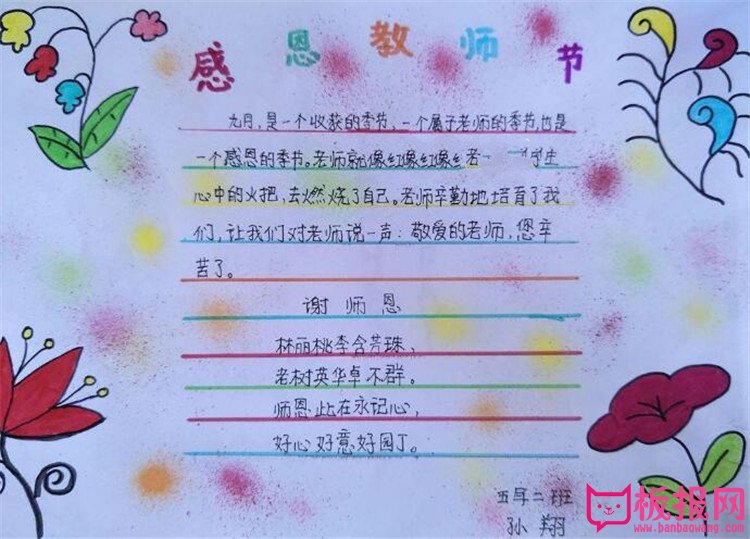 感恩教师节
九月,是一个收获的季节,一个属于老师的季节,也是
一个感恩的季节。老师就像红像红像丝老一 学生
心中的火把,去燃烧了自己。老师辛勤地培育了我
们,让我们对老师说一声:敬爱的老师,您辛
苦了。
谢师恩
林丽桃李含芳珠,
老树英华卓不群。
师恩此在永记心,
好心好意好园丁。
五年二班
孙翔
板报网
www.banbaowang.com